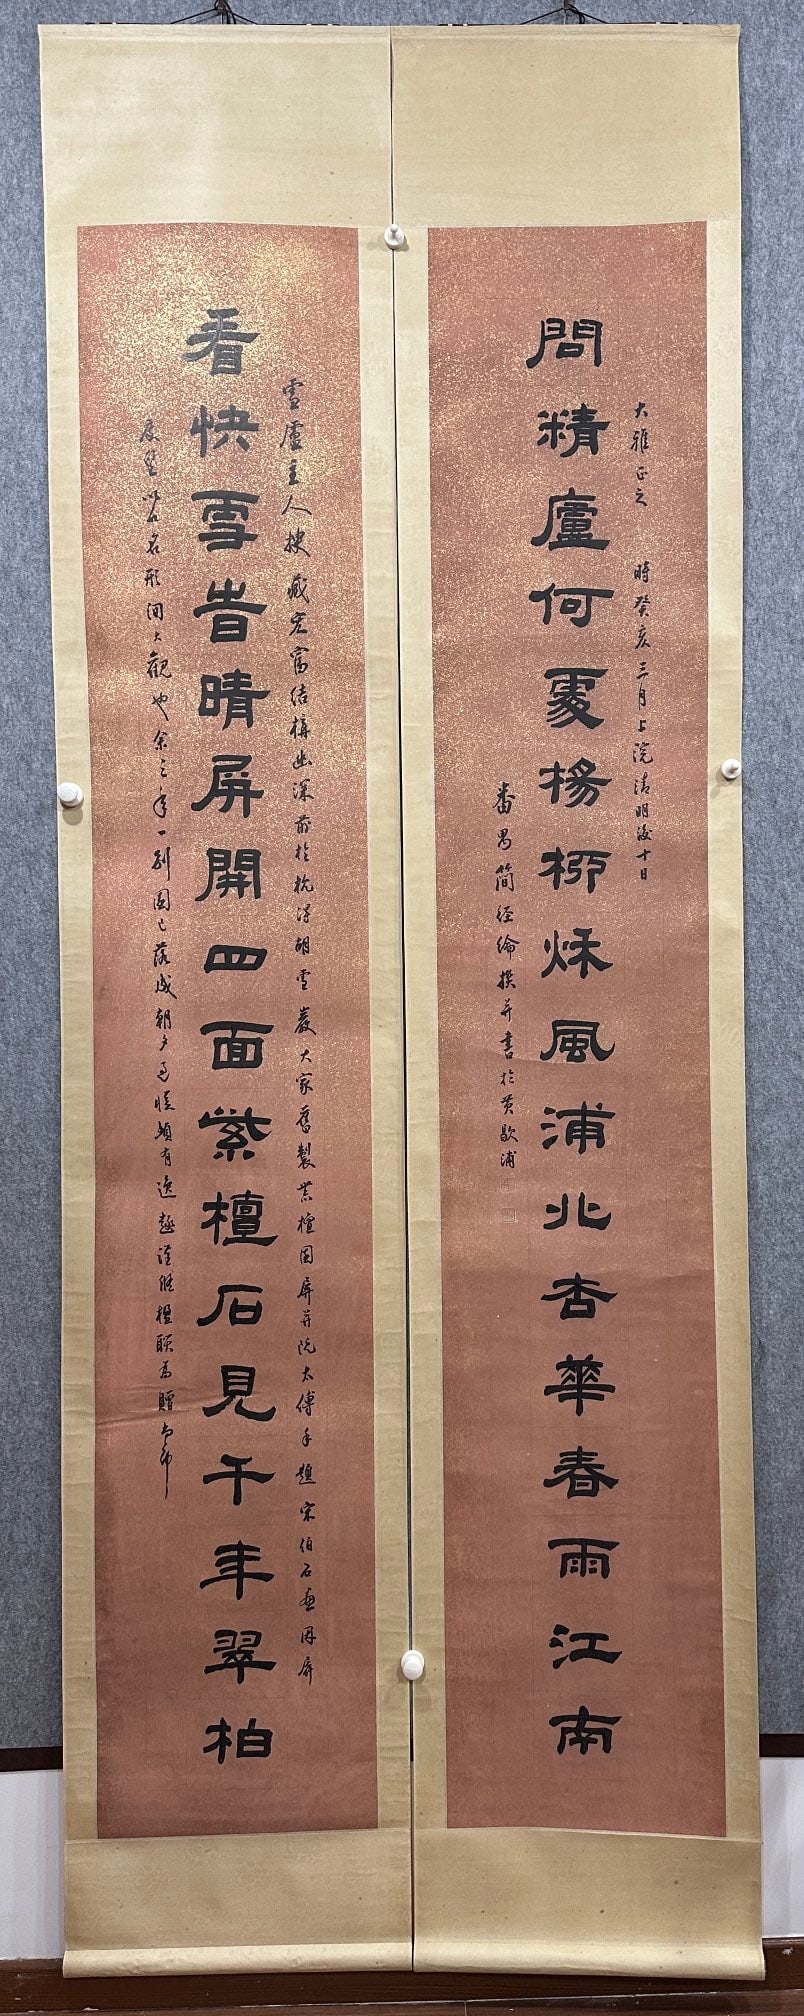 大雅正之 時癸亥三月上浣清明後十日
問精廬何處楊柳秌風浦北杏華春雨江南
番禺簡經綸撰并書於黃歇浦
雪廬主人搜藏宏富結構幽深前於杭得胡雪巖大家舊製紫檀圍屏并阮太傅手題宋柏石畫因屏
看快雪旹晴屏開四面紫檀石見千年翠柏
以石名形洵大觀也余三年一別園已落成朝夕過從頗有逸趣謹綴楹聯為贈即希